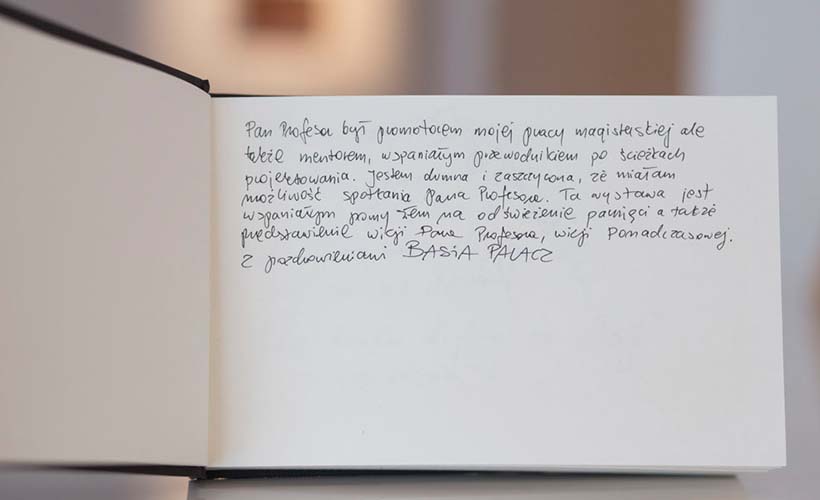 Pan Profesor był promotorem mojej pracy magisterskiej ale
także mentorem, wspaniałym przewodnikiem po ścieżkach
projektowania. Jestem dumna i zaszczycona, że miałam
możliwość spotkania Pana Profesora. Ta wystawa jest
wspaniałym pomysłem na odświeżenie pamięci a także
przedstawienie wizji Pana Profesora, wizji ponadczasowej.
Z pozdrowieniami BASIA PALACZ